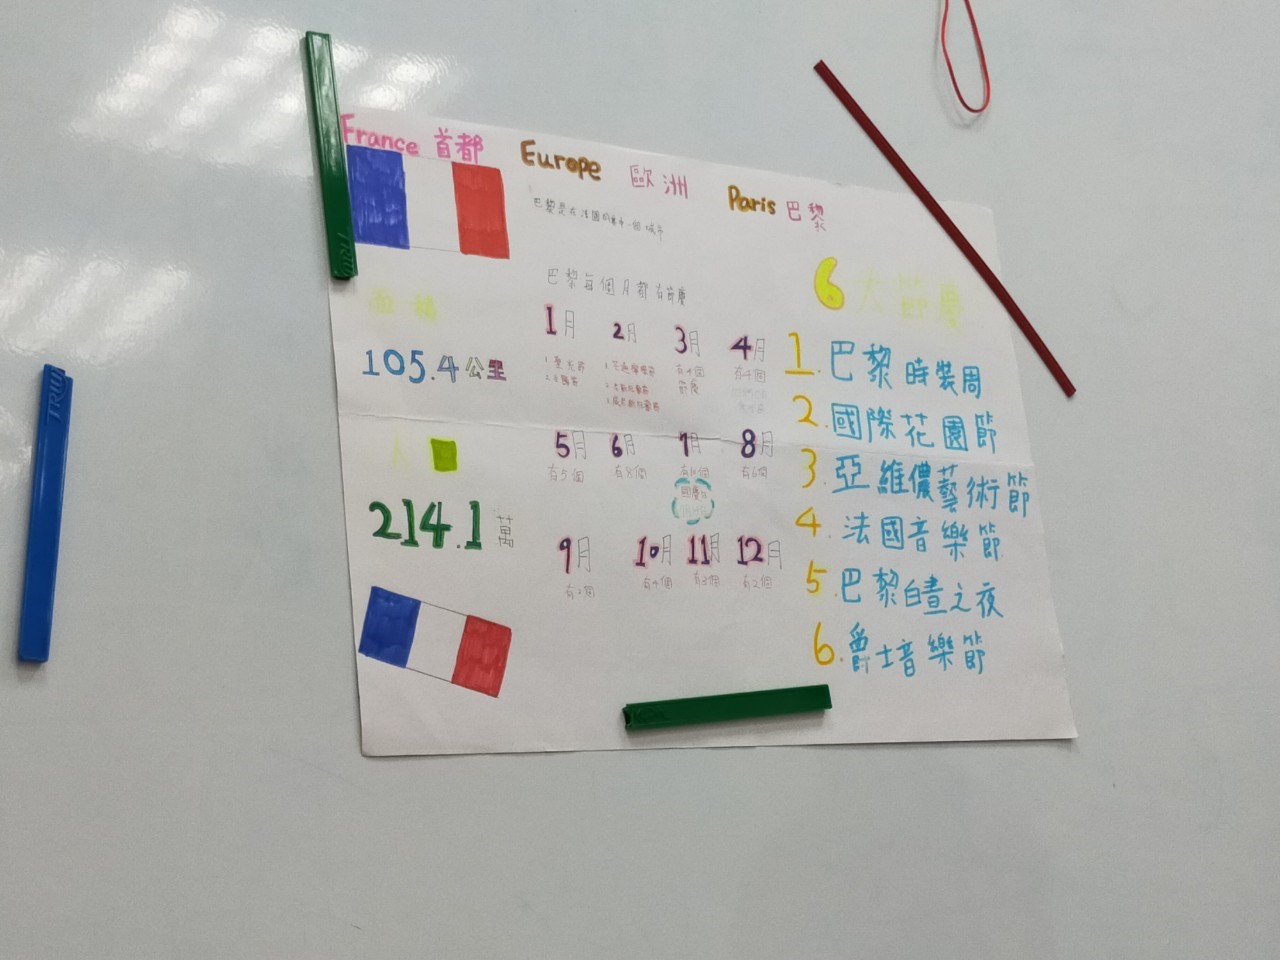 France 首都
Europe 歐洲
Paris 巴黎
巴黎是在法國的其中一個城市
面積
105.4公里
人口
214.1萬
巴黎每個月都有節慶
1月
2月
3月
有4個
節慶
4月
有4個
5月
有5個
6月
有8個
7月
國慶
8月
有6個
9月
有2個
10月
有4個
11月
有3個
12月
有2個
6大節慶
1.巴黎時裝周
2.國際花園節
3.亞維儂藝術節
4.法國音樂節
5.巴黎白晝之夜
6.爵士音樂節
TRUS